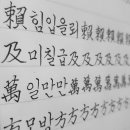 賴 힘입을뢰 賴 賴 賴
及 미칠급 及 及 及 及 及
萬 일만만 萬 萬 萬 萬 萬
方 모방 方 方 方 方 方